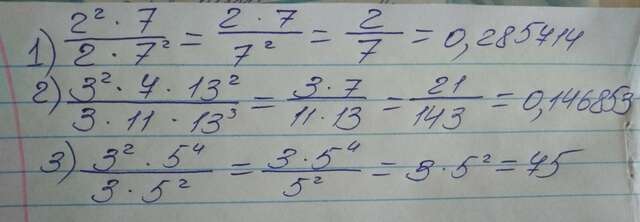 1) 2² · 7 / 2 · 7² = 2 · 7 / 7² = 2 / 7 = 0,285714
2) 3² · 7 · 13² / 3 · 11 · 13³ = 3 · 7 / 11 · 13 = 21 / 143 = 0,146853
3) 3² · 5⁴ / 3 · 5² = 3 · 5⁴ / 5² = 3 · 5² = 75